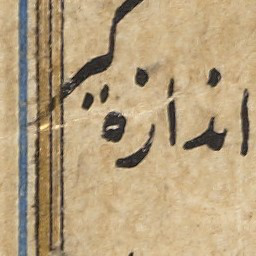 اندازهٔ کیر